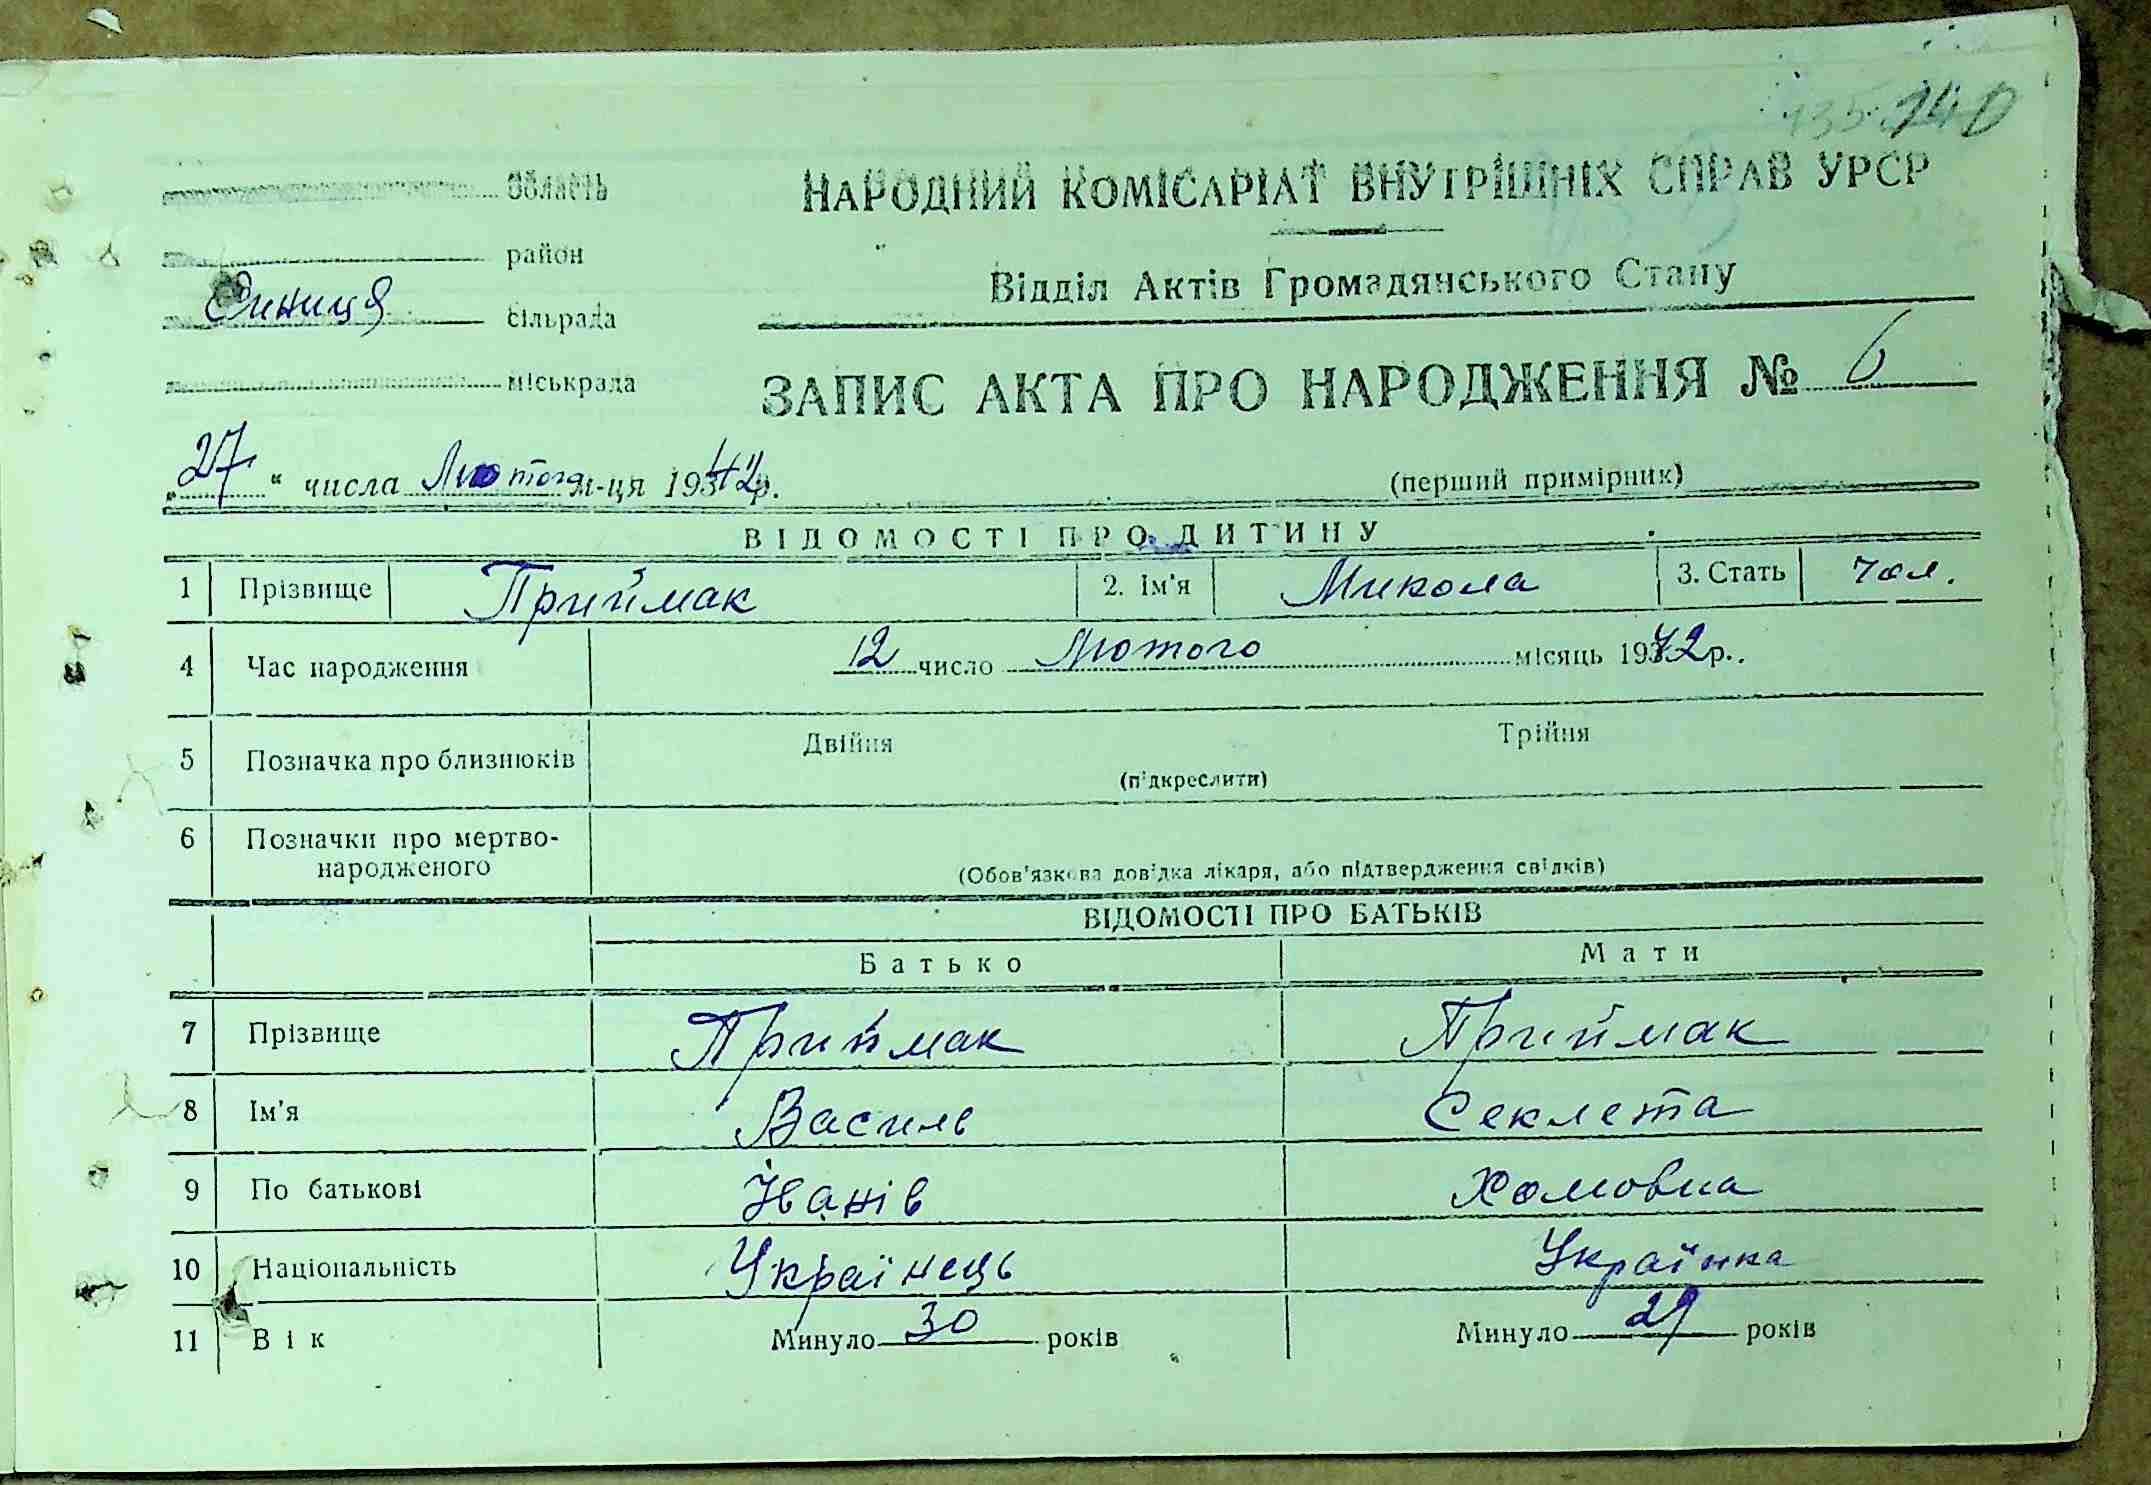 140
область
НАРОДНИЙ КОМІСАРІАТ ВНУТРІШНІХ СПРАВ УРСР
район
Відділ Актів Громадянського Стану
Синиця сільрада
міськрада
ЗАПИС АКТА ПРО НАРОДЖЕННЯ № 6
„27“ числа Лютого м-ця 1942р.
(перший примірник)
ВІДОМОСТІ ПРО ДИТИНУ
1 Прізвище Приймак 2. Ім'я Микола 3. Стать чол.
4 Час народження 12 число Лютого місяць 1942р.
5 Позначка про близнюків Двійня Трійня
(підкреслити)
6 Позначки про мертво-
народженого
(Обов'язкова довідка лікаря, або підтвердження свідків)
ВІДОМОСТІ ПРО БАТЬКІВ
Батько Мати
7 Прізвище Приймак Приймак
8 Ім'я Василь Секлета
9 По батькові Іванів Хомовна
10 Національність Українець Українка
11 Вік Минуло 30 років Минуло 29 років